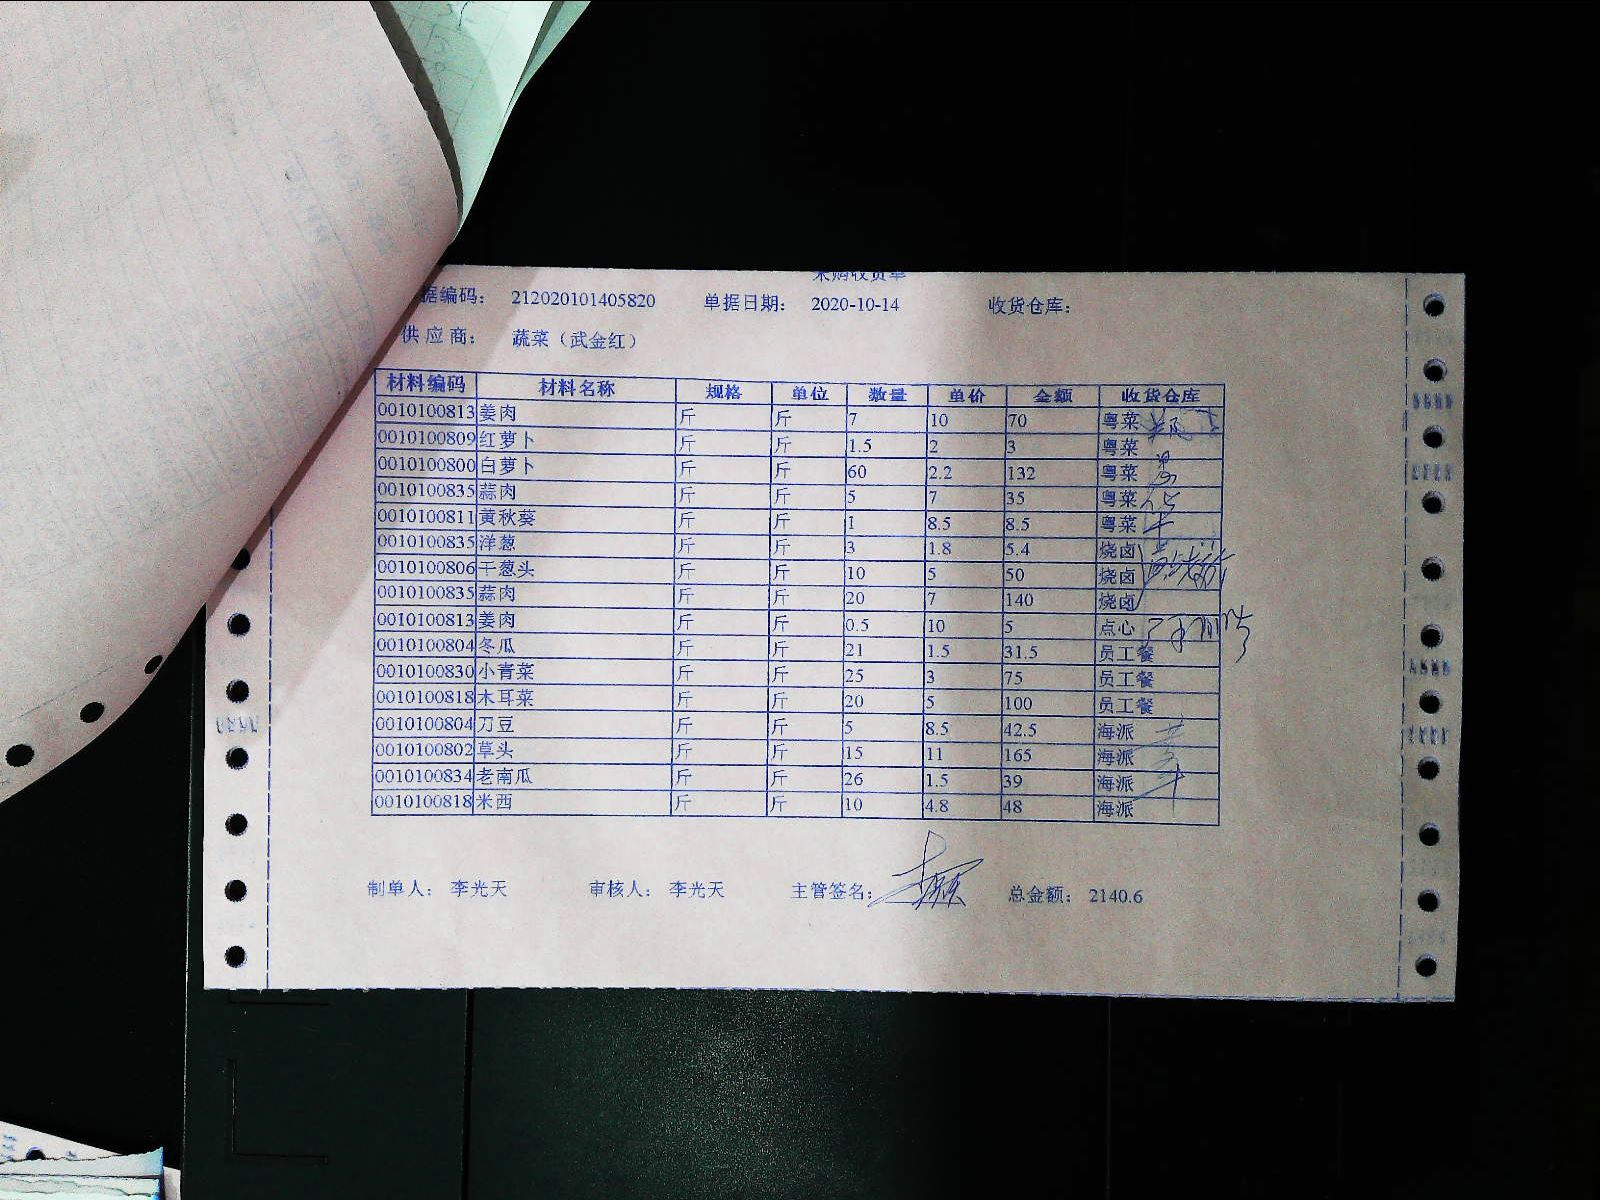 采购收货单
据编码： 212020101405820 单据日期： 2020-10-14 收货仓库：
供应商： 蔬菜（武金红）
材料编码 材料名称 规格 单位 数量 单价 金额 收货仓库
0010100813 姜肉 斤 斤 7 10 70 粤菜
0010100809 红萝卜 斤 斤 1.5 2 3 粤菜
0010100800 白萝卜 斤 斤 60 2.2 132 粤菜
0010100835 蒜肉 斤 斤 5 7 35 粤菜
0010100811 黄秋葵 斤 斤 1 8.5 8.5 粤菜
0010100835 洋葱 斤 斤 3 1.8 5.4 烧卤
0010100806 干葱头 斤 斤 10 5 50 烧卤
0010100835 蒜肉 斤 斤 20 7 140 烧卤
0010100813 姜肉 斤 斤 0.5 10 5 点心
0010100804 冬瓜 斤 斤 21 1.5 31.5 员工餐
0010100830 小青菜 斤 斤 25 3 75 员工餐
0010100818 木耳菜 斤 斤 20 5 100 员工餐
0010100804 刀豆 斤 斤 5 8.5 42.5 海派
0010100802 草头 斤 斤 15 11 165 海派
0010100834 老南瓜 斤 斤 26 1.5 39 海派
0010100818 米西 斤 斤 10 4.8 48 海派
制单人： 李光天 审核人： 李光天 主管签名： 总金额： 2140.6